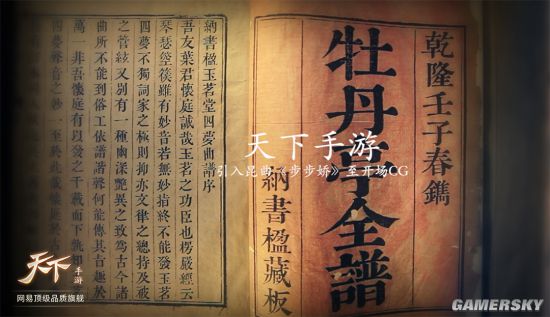 乾隆壬子春鐫
牡丹亭全譜
納書楹藏板
納書楹玉茗堂四夢曲譜序
吾友葉君懷庭誠哉玉茗之功臣也楞嚴經云
琴瑟箜篌雖有妙音若無妙指終不能發玉茗
四夢不獨詞家之極則抑亦文律之總持及被
之管絃又別有一種幽深艷異之致為古今諸
曲所不能到俗工依譜諧聲何能傳其音趣於
萬一非吾懷庭有以發之千載而下孰知
四夢聲音之妙一至於此哉懷庭於古
天下手游
引入昆曲《步步娇》至开场CG
天下手游
网易顶级品质旗舰
GAMERSKY